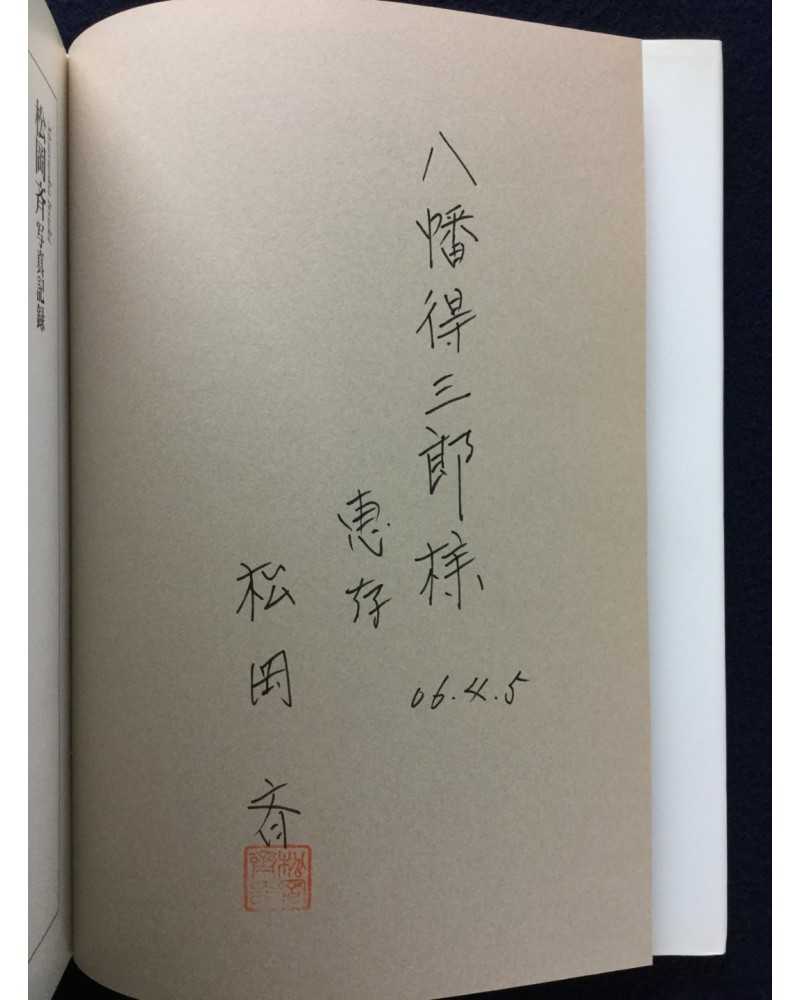 八幡得三郎様
惠存
06.4.5
松岡 斉
松岡斉 写真記録